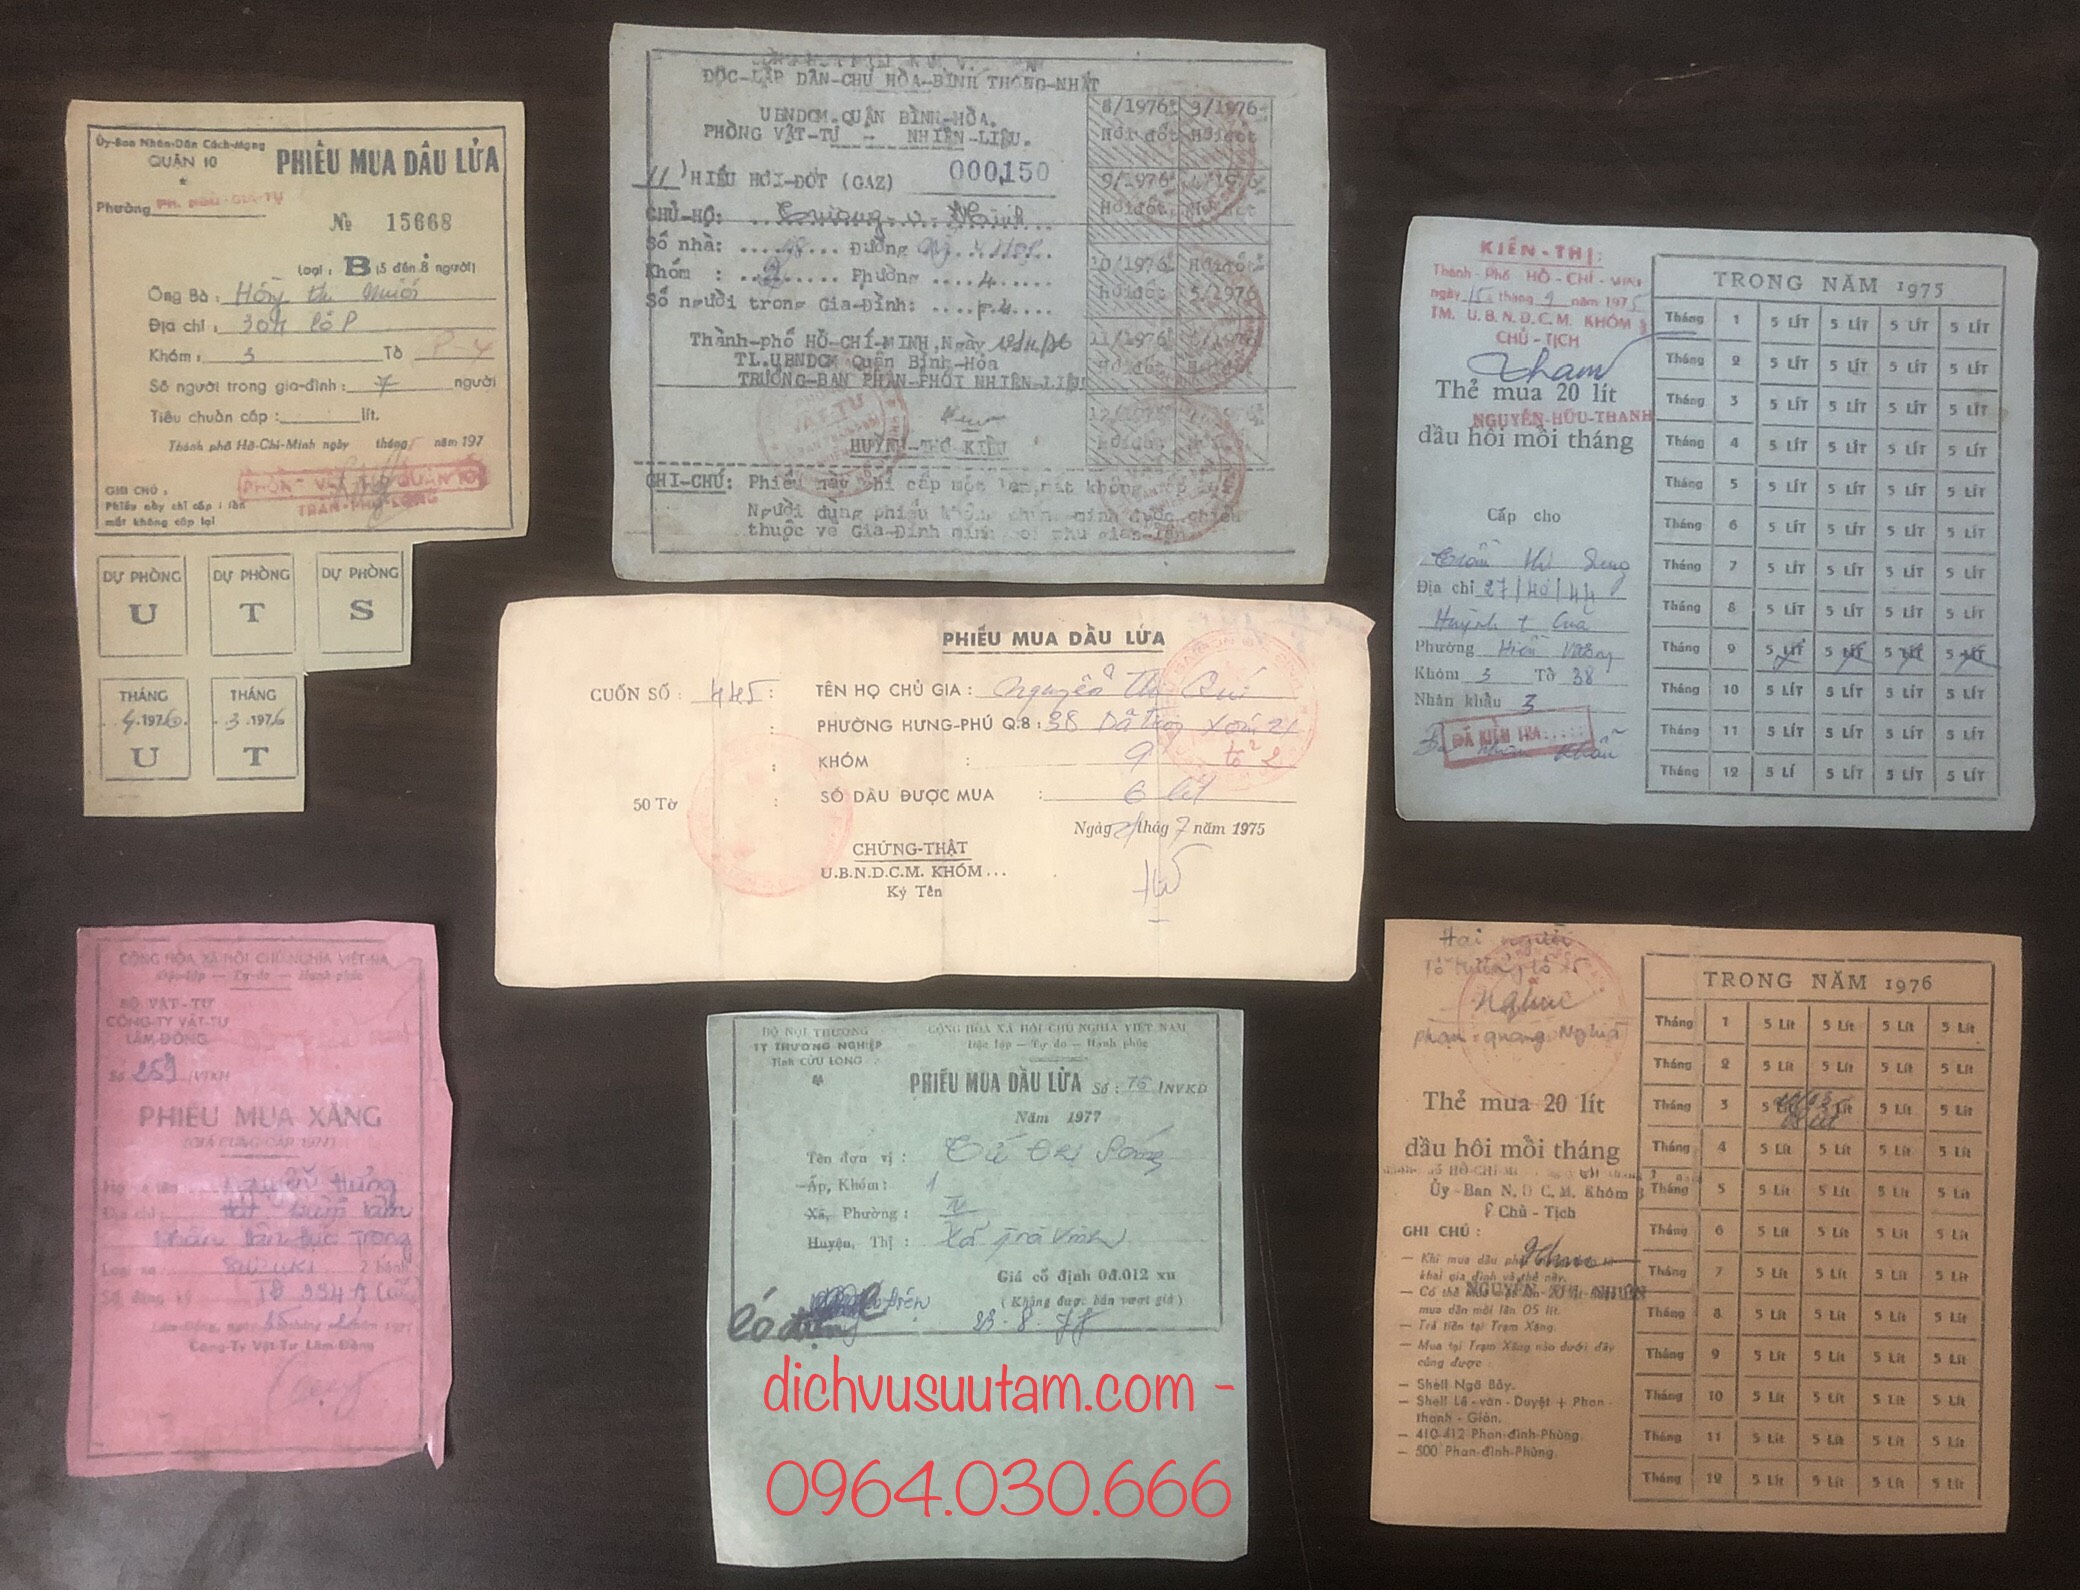 Ủy-Ban Nhân-Dân Cách-Mạng
QUẬN 10
PHIẾU MUA DẦU LỬA
Phường PH. NGÔ-GIA-TỰ
№ 15668
Loại : B (5 đến 8 người)
Ông Bà :
Địa chỉ :
Khóm : 3 Tờ
Số người trong gia-đình : 7 người
Tiêu chuẩn cấp : lít.
Thành phố Hồ-Chí-Minh ngày tháng năm 197
PHÒNG VẬT TƯ QUẬN 10
TRẦN-PHI-LONG
GHI CHÚ :
Phiếu này chỉ cấp 1 lần
mất không cấp lại
DỰ PHÒNG DỰ PHÒNG DỰ PHÒNG
U T S
THÁNG THÁNG
4.1976 3.1976
U T
ĐỘC-LẬP DÂN-CHỦ HÒA-BÌNH THỐNG-NHẤT
UBNDCM.QUẬN BÌNH-HÒA.
PHÒNG VẬT-TƯ - NHIÊN-LIỆU.
HIẾU HƠI-ĐỐT (GAZ) 000,150
CHỦ-HỘ:
Số nhà: Đường
Khóm : 2 Phường 4
Số người trong Gia-Đình:
Thành-phố HỒ-CHÍ-MINH,Ngày
TL.UBNDCM Quận Bình-Hòa
TRƯỞNG-BAN PHÂN-PHỐI NHIÊN-LIỆU
HUỲNH-THƠ KIỀU
GHI-CHÚ: Phiếu này chỉ cấp một lần,mất không cấp
Người dùng phiếu không chứng-minh được phiếu
thuộc về Gia-Đình mình
8/1976 3/1976
Hơi đốt Hơi đốt
9/1976 4/1976
Hơi đốt Hơi đốt
10/1976 Hơi đốt
Hơi đốt 5/1976
11/1976 6/1976
Hơi đốt Hơi đốt
KIẾN-THỊ:
Thành-Phố HỒ-CHÍ-MINH
ngày 15 tháng 9 năm 1975
TM. U.B.N.D.C.M. KHÓM 3
CHỦ-TỊCH
Thẻ mua 20 lít
NGUYỄN-HỮU-THANH
dầu hôi mỗi tháng
Cấp cho
Địa chỉ 27/40/44
Huỳnh t Của
Phường Hiền Vương
Khóm 3 Tờ 38
Nhân khẩu 3
ĐÃ KIỂM TRA
TRONG NĂM 1975
Tháng 1 5 LÍT 5 LÍT 5 LÍT 5 LÍT
Tháng 2 5 LÍT 5 LÍT 5 LÍT 5 LÍT
Tháng 3 5 LÍT 5 LÍT 5 LÍT 5 LÍT
Tháng 4 5 LÍT 5 LÍT 5 LÍT 5 LÍT
Tháng 5 5 LÍT 5 LÍT 5 LÍT 5 LÍT
Tháng 6 5 LÍT 5 LÍT 5 LÍT 5 LÍT
Tháng 7 5 LÍT 5 LÍT 5 LÍT 5 LÍT
Tháng 8 5 LÍT 5 LÍT 5 LÍT 5 LÍT
Tháng 9 5 LÍT 5 LÍT 5 LÍT 5 LÍT
Tháng 10 5 LÍT 5 LÍT 5 LÍT 5 LÍT
Tháng 11 5 LÍT 5 LÍT 5 LÍT 5 LÍT
Tháng 12 5 LÍ 5 LÍT 5 LÍT 5 LÍT
PHIẾU MUA DẦU LỬA
CUỐN SỐ : 445 : TÊN HỌ CHỦ GIA : Nguyễn Thị
PHƯỜNG HƯNG-PHÚ Q.8 : 38
KHÓM : 9 tổ 2
50 Tờ : SỐ DẦU ĐƯỢC MUA : 6 lít
Ngày thág 7 năm 1975
CHỨNG-THẬT
U.B.N.D.C.M. KHÓM...
Ký Tên
CỘNG HÒA XÃ HỘI CHỦ NGHĨA VIỆT-NA
Độc-lập — Tự-do — Hạnh phúc
BỘ VẬT-TƯ
CÔNG-TY VẬT-TƯ
LÂM-ĐỒNG
Số 259/VTKH
PHIẾU MUA XĂNG
(GIÁ CUNG-CẤP 1977)
Nguyễn Hưng
Địa chỉ
Loại xe SUZUKI 2 bánh
Công-Ty Vật-Tư Lâm-Đồng
BỘ NỘI THƯƠNG
TY THƯƠNG NGHIỆP
Tỉnh CỬU LONG
CỘNG HÒA XÃ HỘI CHỦ NGHĨA VIỆT NAM
Độc lập — Tự do — Hạnh phúc
PHIẾU MUA DẦU LỬA Số : 76 /NVKD
Năm 1977
Tên đơn vị :
Ấp, Khóm : 1
Xã, Phường : IV
Huyện, Thị : Trà Vinh
Giá cố định 0đ.012 xu
(Không được bán vượt giá)
23-8-77
dichvusuutam.com -
0964.030.666
Hai người
Nghĩa
phạm quang Nghĩa
Thẻ mua 20 lít
dầu hôi mỗi tháng
Ủy-Ban N.D C.M. Khóm 3
Chủ-Tịch
GHI CHÚ :
NGUYỄN THỊ NHUẬN
— Trả tiền tại Trạm Xăng.
— Mua tại Trạm Xăng nào dưới đây
cũng được :
— Shell Ngã Bảy.
— Shell Lê-văn-Duyệt + Phan-
thanh-Giản.
— 410-412 Phan-đình-Phùng.
— 500 Phan-đình-Phùng.
TRONG NĂM 1976
Tháng 1 5 Lít 5 Lít 5 Lít 5 Lít
Tháng 2 5 Lít 5 Lít 5 Lít 5 Lít
Tháng 3 5 Lít 5 Lít 5 Lít 5 Lít
Tháng 4 5 Lít 5 Lít 5 Lít 5 Lít
Tháng 5 5 Lít 5 Lít 5 Lít 5 Lít
Tháng 6 5 Lít 5 Lít 5 Lít 5 Lít
Tháng 7 5 Lít 5 Lít 5 Lít 5 Lít
Tháng 8 5 Lít 5 Lít 5 Lít 5 Lít
Tháng 9 5 Lít 5 Lít 5 Lít 5 Lít
Tháng 10 5 Lít 5 Lít 5 Lít 5 Lít
Tháng 11 5 Lít 5 Lít 5 Lít 5 Lít
Tháng 12 5 Lít 5 Lít 5 Lít 5 Lít